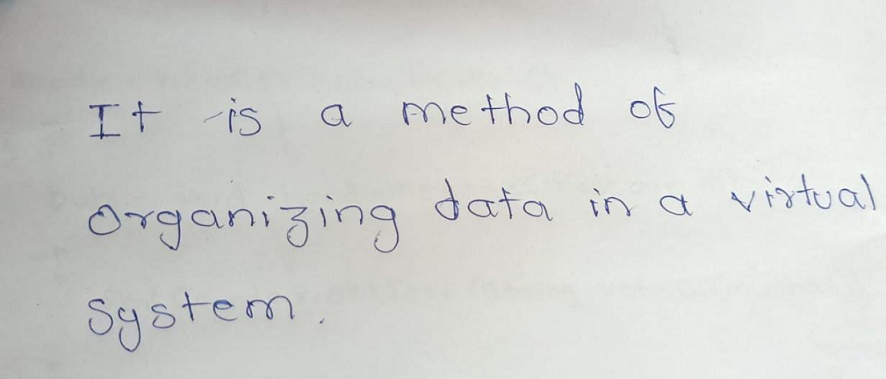 It is a method of
organizing data in a virtual
system.